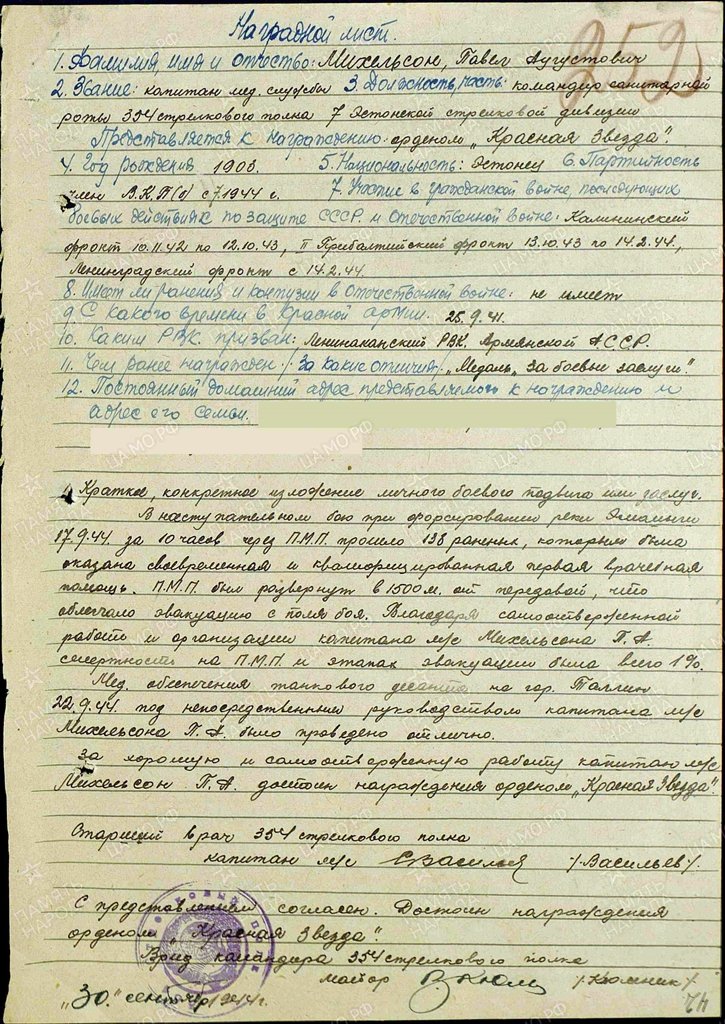 Наградной лист.
252
1. Фамилия, имя и отчество: Михельсон, Павел Аугустович
2. Звание: капитан мед. службы 3. Должность, часть: командир санитарной
роты 354 стрелкового полка 7 Эстонской стрелковой дивизии
Представляется к награждению орденом „Красная Звезда".
4. Год рождения 1903. 5. Национальность: эстонец 6. Партийность
член В.К.П(б) с 7.1944 г. 7. Участие в гражданской войне, последующих
боевых действиях по защите СССР и Отечественной войне: Калининский
фронт 10.11.42 по 12.10.43, II Прибалтийский фронт 13.10.43 по 14.2.44.,
Ленинградский фронт с 14.2.44.
8. Имеет ли ранения и контузии в отечественной войне: не имеет
9 С какого времени в Красной армии. 25.9.41.
10. Каким РВК призван: Ленинаканский РВК. Армянской АССР.
11. Чем ранее награжден /за какие отличия/ „Медаль „За боевые заслуги".
12. Постоянный домашний адрес представляемого к награждению и
адрес его семьи.
Краткое, конкретное изложение личного боевого подвига или заслуг.
В наступательном бою при форсировании реки Эмайыги
17.9.44. за 10 часов через П.М.П. прошло 138 раненых, которым была
оказана своевременная и квалифицированная первая врачебная
помощь. П.М.П. был развернут в 1500 м. от передовой, что
облегчало эвакуацию с поля боя. Благодаря самоотверженной
работе и организации капитана м/с Михельсона П.А.
смертность на П.М.П. и этапах эвакуации была всего 1%.
Мед. обеспечения танкового десанта на гор. Таллин
22.9.44. под непосредственным руководством капитана м/с
Михельсона П.А. было проведено отлично.
За хорошую и самоотверженную работу капитан м/с
Михельсон П.А. достоин награждения орденом „Красная Звезда".
Старший врач 354 стрелкового полка
капитан м/с /Васильев/.
С представлением согласен. Достоин награждения
орденом „Красная Звезда".
Врид командира 354 стрелкового полка
майор
„30." сентября 1944 г.